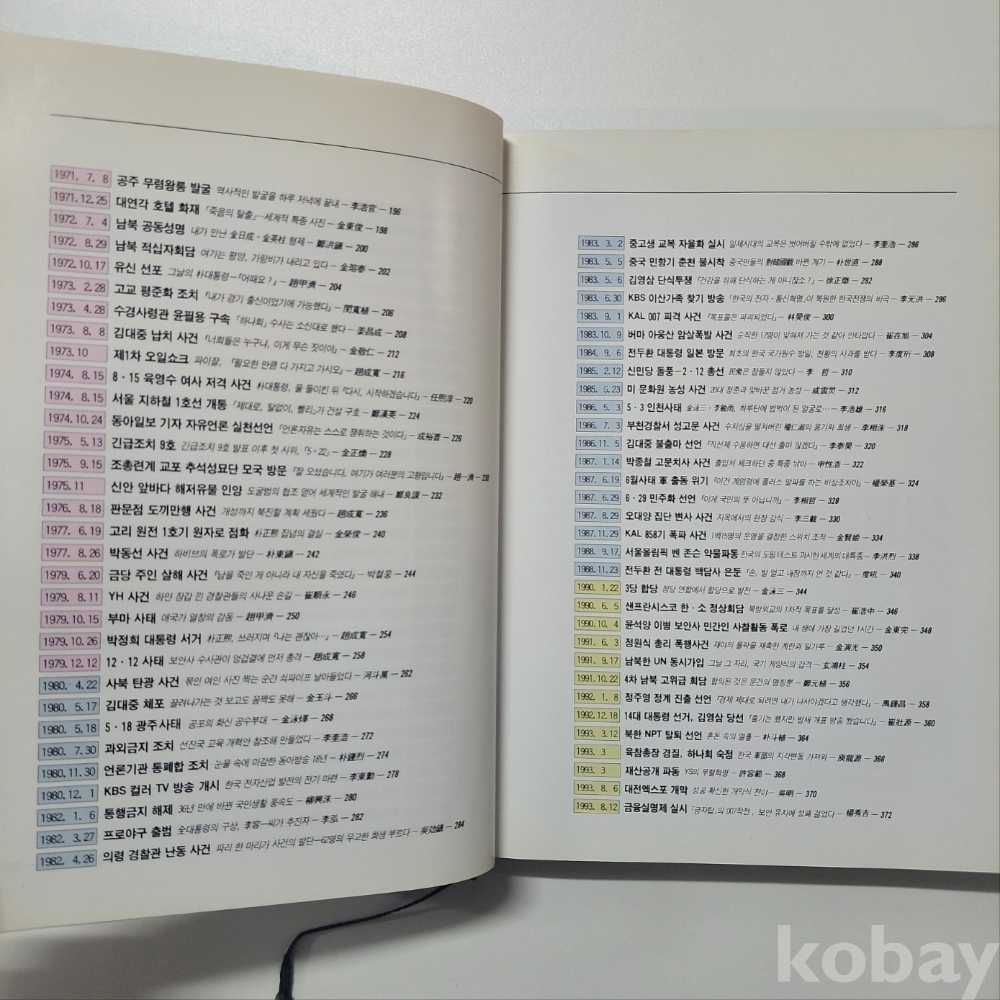 1971. 7. 8 공주 무령왕릉 발굴 역사적인 발굴을 하루 저녁에 끝내 – 李浩官 – 196
1971.12.25 대연각 호텔 화재 「죽음의 탈출」…세계적 특종 사진 – 金東俊 – 198
1972. 7. 4 남북 공동성명 내가 만난 金日成·金英柱 형제 – 鄭洪鎭 – 200
1972. 8.29 남북 적십자회담 여기는 평양, 가랑비가 내리고 있다 – 金容泰 – 202
1972.10.17 유신 선포 그날의 朴대통령–「어때요?」 – 趙甲濟 – 204
1973. 2.28 고교 평준화 조치 「내가 경기 출신이었기에 가능했다」 – 閔寬植 – 206
1973. 4.28 수경사령관 윤필용 구속 「하나회」 수사는 소신대로 했다 – 姜昌成 – 208
1973. 8. 8 김대중 납치 사건 「너희들은 누구냐, 이게 무슨 짓이야」 – 金敬仁 – 212
1973.10 제1차 오일쇼크 파이잘, 「필요한 만큼 다 가지고 가시오」 – 趙成寬 – 216
1974. 8.15 8·15 육영수 여사 저격 사건 朴대통령, 물 들이킨 뒤 「다시, 시작하겠습니다」 – 任熙淳 – 220
1974. 8.15 서울 지하철 1호선 개통 「제대로, 탈없이, 빨리」가 건설 구호 – 鄭漢英 – 224
1974.10.24 동아일보 기자 자유언론 실천선언 「언론자유는 스스로 쟁취하는 것이다」 – 成裕普 – 226
1975. 5.13 긴급조치 9호 긴급조치 9호 발표 이후 첫 시위, 「5·22」 – 金正煥 – 228
1975. 9.15 조총련계 교포 추석성묘단 모국 방문 「잘 오셨습니다. 여기가 여러분의 고향입니다」 – 趙一濟 – 230
1975.11 신안 앞바다 해저유물 인양 도굴범의 협조 얻어 세계적인 발굴 해내 – 鄭良謨 – 232
1976. 8.18 판문점 도끼만행 사건 개성까지 북진할 계획 세웠다 – 趙成寬 – 236
1977. 6.19 고리 원전 1호기 원자로 점화 朴正熙 집념의 결실 – 金榮俊 – 240
1977. 8.26 박동선 사건 하비브의 폭로가 발단 – 朴東鎭 – 242
1979. 6.20 금당 주인 살해 사건 「남을 죽인 게 아니라 내 자신을 죽였다」 – 박철웅 – 244
1979. 8.11 YH 사건 하얀 장갑 낀 경찰관들의 사나운 손길 – 崔順永 – 246
1979.10.15 부마 사태 애국가 열창의 감동 – 趙甲濟 – 250
1979.10.26 박정희 대통령 서거 朴正熙, 쓰러지며 「나는 괜찮아…」 – 趙成寬 – 254
1979.12.12 12·12 사태 보안사 수사관이 엉겁결에 먼저 총격 – 趙成寬 – 258
1980. 4.22 사북 탄광 사건 묶인 여인 사진 찍는 순간 쇠파이프 날아들었다 – 河斗萬 – 262
1980. 5.17 김대중 체포 끌려나가는 것 보고도 꼼짝도 못해 – 金玉斗 – 266
1980. 5.18 5·18 광주사태 공포의 화신 공수부대 – 金泳鐸 – 268
1980. 7.30 과외금지 조치 선진국 교육 개혁안 참조해 만들었다 – 李奎浩 – 272
1980.11.30 언론기관 통폐합 조치 눈물 속에 마감한 동아방송 18년 – 朴鍾烈 – 274
1980.12. 1 KBS 컬러 TV 방송 개시 한국 전자산업 발전의 전기 마련 – 李東勳 – 278
1982. 1. 6 통행금지 해제 36년 만에 바뀐 국민생활 풍속도 – 柳興泳 – 280
1982. 3.27 프로야구 출범 全대통령의 구상, 李容一씨가 추진자 – 李泓 – 282
1982. 4.26 의령 경찰관 난동 사건 파리 한 마리가 사건의 발단–62명의 무고한 희생 부르다 – 吳効鎭 – 284
1983. 3. 2 중고생 교복 자율화 실시 일제시대의 교복은 벗어버릴 수밖에 없었다 – 李奎浩 – 286
1983. 5. 5 중국 민항기 춘천 불시착 중국인들의 對韓國觀 바뀐 계기 – 朴世直 – 288
1983. 5.18 김영삼 단식투쟁 「건강을 위해 단식하는 게 아니잖소?」 – 徐正燉 – 292
1983. 6.30 KBS 이산가족 찾기 방송 「한국의 전자·통신혁명」이 복원한 한국전쟁의 비극 – 李元洪 – 296
1983. 9. 1 KAL 007 피격 사건 「목표물은 파괴되었다」 – 林榮俊 – 300
1983.10. 9 버마 아웅산 암살폭발 사건 순직한 17명이 잊혀져 가는 것 같아 안타깝다 – 崔在旭 – 304
1984. 9. 6 전두환 대통령 일본 방문 최초의 한국 국가원수 방일, 천황의 사과를 받다 – 李度珩 – 308
1985. 2.12 신민당 돌풍–2·12 총선 民衆은 잠들지 않았다 – 李 哲 – 310
1985. 5.23 미 문화원 농성 사건 20대 청춘과 맞바꾼 점거 농성 – 咸雲炅 – 312
1986. 5. 3 5·3 인천사태 金泳三·李敏雨, 최루탄에 범벅이 된 얼굴로… – 李浩雄 – 316
1986. 7. 3 부천경찰서 성고문 사건 수치심을 떨쳐버린 權仁淑의 용기와 희생 – 李相洙 – 318
1986.11. 5 김대중 불출마 선언 「직선제 수용하면 대선 출마 않겠다」 – 李泰昊 – 320
1987. 1.14 박종철 고문치사 사건 출입처 체크하던 중 특종 낚아 – 申性浩 – 322
1987. 6.19 6월사태 軍 출동 위기 「이건 계엄령에 플러스 알파를 하는 비상조치야」 – 權榮基 – 324
1987. 6.29 6·29 민주화 선언 「이게 국민의 뜻 아닙니까」 – 李相哲 – 328
1987. 8.29 오대양 집단 변사 사건 지옥에서의 현장 감식 – 李三載 – 330
1987.11.29 KAL 858기 폭파 사건 1백15명의 운명을 결정한 스위치 조작 – 金賢姬 – 334
1988. 9.17 서울올림픽 벤 존슨 약물파동 한국의 도핑 테스트 과시한 세계의 대특종 – 李洪烈 – 338
1988.11.23 전두환 전 대통령 백담사 은둔 「손, 발 얼고 내장까지 언 것 같다」 – 度吼 – 340
1990. 1.22 3당 합당 정당 연합에서 합당으로 발전 – 金泳三 – 344
1990. 6. 5 샌프란시스코 한·소 정상회담 북방외교의 1차적 목표를 달성 – 崔浩中 – 346
1990.10. 4 윤석양 이병 보안사 민간인 사찰활동 폭로 내 생애 가장 길었던 1시간 – 金東完 – 348
1991. 6. 3 정원식 총리 폭행사건 재야의 몰락을 재촉한 계란과 밀가루 – 金演光 – 350
1991. 9.17 남북한 UN 동시가입 그날 그 자리, 국기 게양식의 감격 – 玄鴻柱 – 354
1991.10.22 4차 남북 고위급 회담 합의된 것은 문건의 명칭뿐 – 鄭元植 – 356
1992. 1. 8 정주영 정계 진출 선언 「경제 제대로 되려면 내가 나서야겠다고 생각했다」 – 禹鍾昌 – 358
1992.12.18 14대 대통령 선거, 김영삼 당선 「졸기는 했지만 밤새 개표 방송 봤습니다」 – 崔壯源 – 360
1993. 3.12 북한 NPT 탈퇴 선언 혼돈 속의 열흘 – 朴斗植 – 364
1993. 3 육참총장 경질, 하나회 숙정 한국 軍部의 지각변동 가져와 – 庾龍源 – 366
1993. 3 재산공개 파동 YS의 무혈혁명 – 許容範 – 368
1993. 8. 6 대전엑스포 개막 성공 확신한 개막식 전야 – 吳明 – 370
1993. 8.12 금융실명제 실시 「금자탑」의 007작전, 보안 유지에 성패 걸었다 – 楊秀吉 – 372
kobay